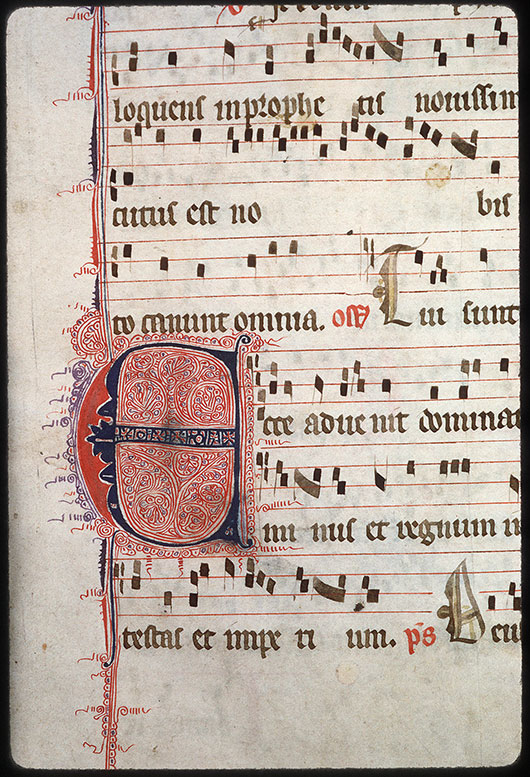 loquens in prophe tis nouissim
cutus est no bis
to canunt omnia. Tui sunt
Ecce aduenit dominat
mi nus et regnum in
testas et impe ri um. ps Deu